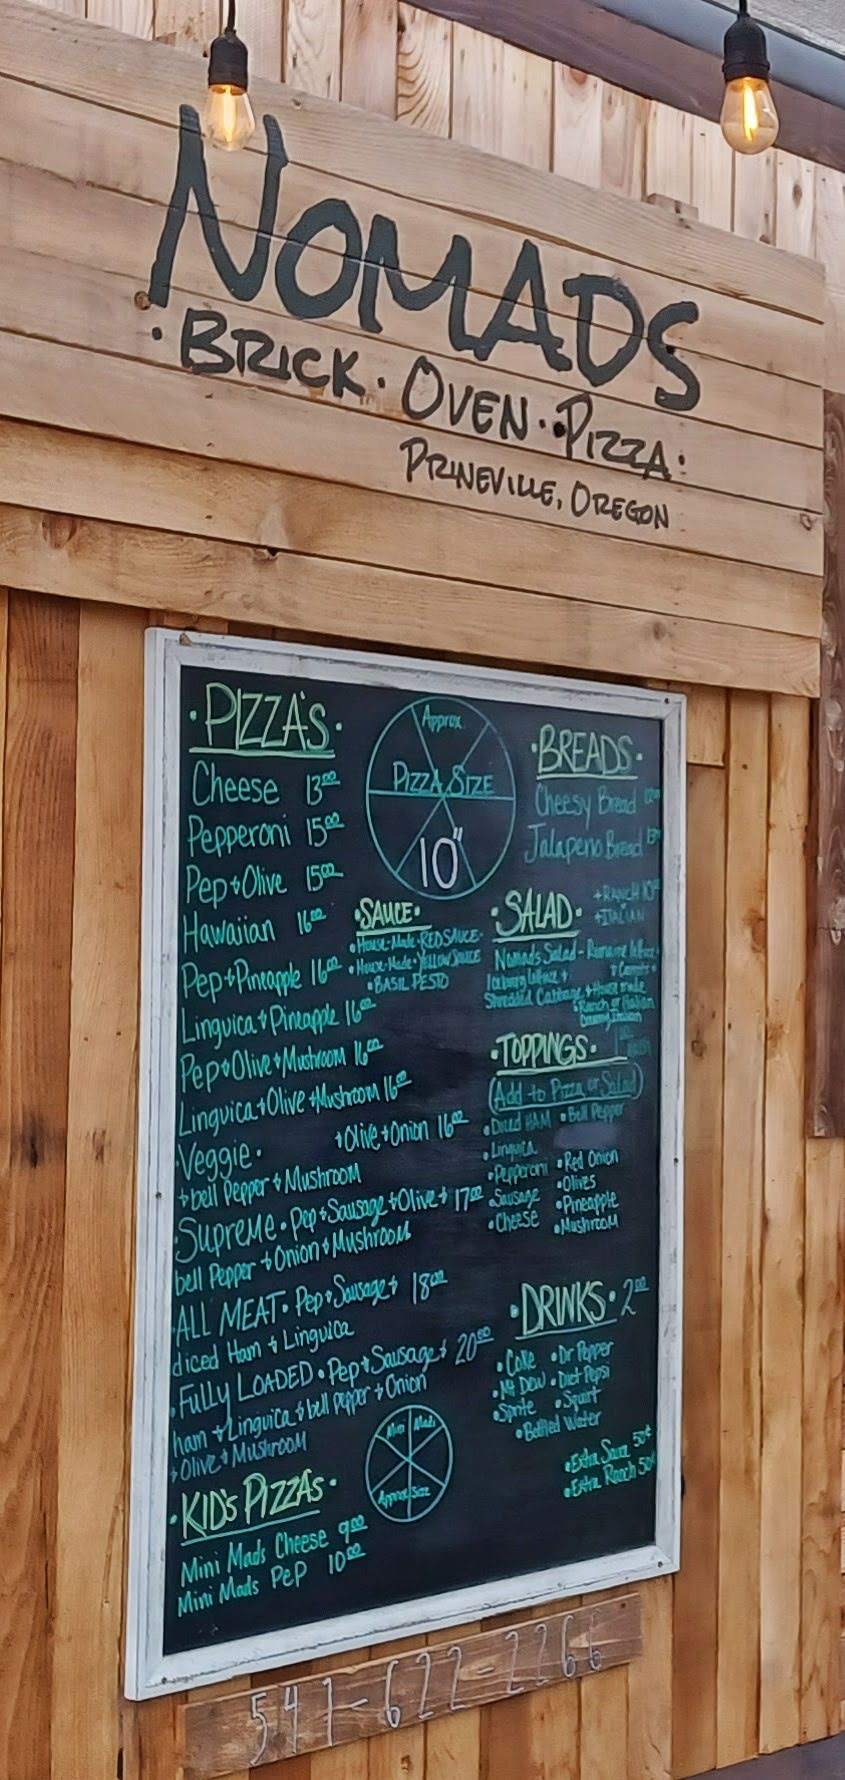 NOMADS
• BRICK • OVEN • PIZZA •
PRINEVILLE, OREGON
• PIZZA'S •
Cheese 13.00
Pepperoni 15.00
Pep + Olive 15.00
Hawaiian 16.00
Pep + Pineapple 16.00
Linguica + Pineapple 16.00
Pep + Olive + Mushroom 16.00
Linguica + Olive + Mushroom 16.00
Veggie • + Olive + Onion 16.00
+ bell Pepper + Mushroom
Supreme • Pep + Sausage + Olive + 17.00
bell Pepper + Onion + Mushroom
• ALL MEAT • Pep + Sausage + 18.00
diced Ham + Linguica
• FULLY LOADED • Pep + Sausage + 20.00
ham + Linguica + bell pepper + Onion
+ Olive + Mushroom
• KID'S PIZZA'S •
Mini Mads Cheese 9.00
Mini Mads Pep 10.00
Approx.
PIZZA SIZE
10"
• SAUCE •
• House-Made • RED SAUCE •
• House-Made • YELLOW SAUCE
• BASIL PESTO
Mini Mads
Approx Size
• BREADS •
Cheesy Bread
Jalapeno Bread
• SALAD •
+ RANCH
+ ITALIAN
Nomads Salad - Romaine lettuce
Iceburg lettuce + + Carrots +
Shredded Cabbage + House made
Ranch or Italian
• TOPPINGS •
(Add to Pizza or Salad)
• Diced HAM • Bell Pepper
• Linguica
• Pepperoni • Red Onion
• Sausage • Olives
• Cheese • Pineapple
• Mushroom
• DRINKS • 2.00
• Coke • Dr Pepper
• Mt Dew • Diet Pepsi
• Sprite • Squirt
• Bottled Water
• Extra Sauce 50¢
• Extra Ranch 50¢
541-622-2266